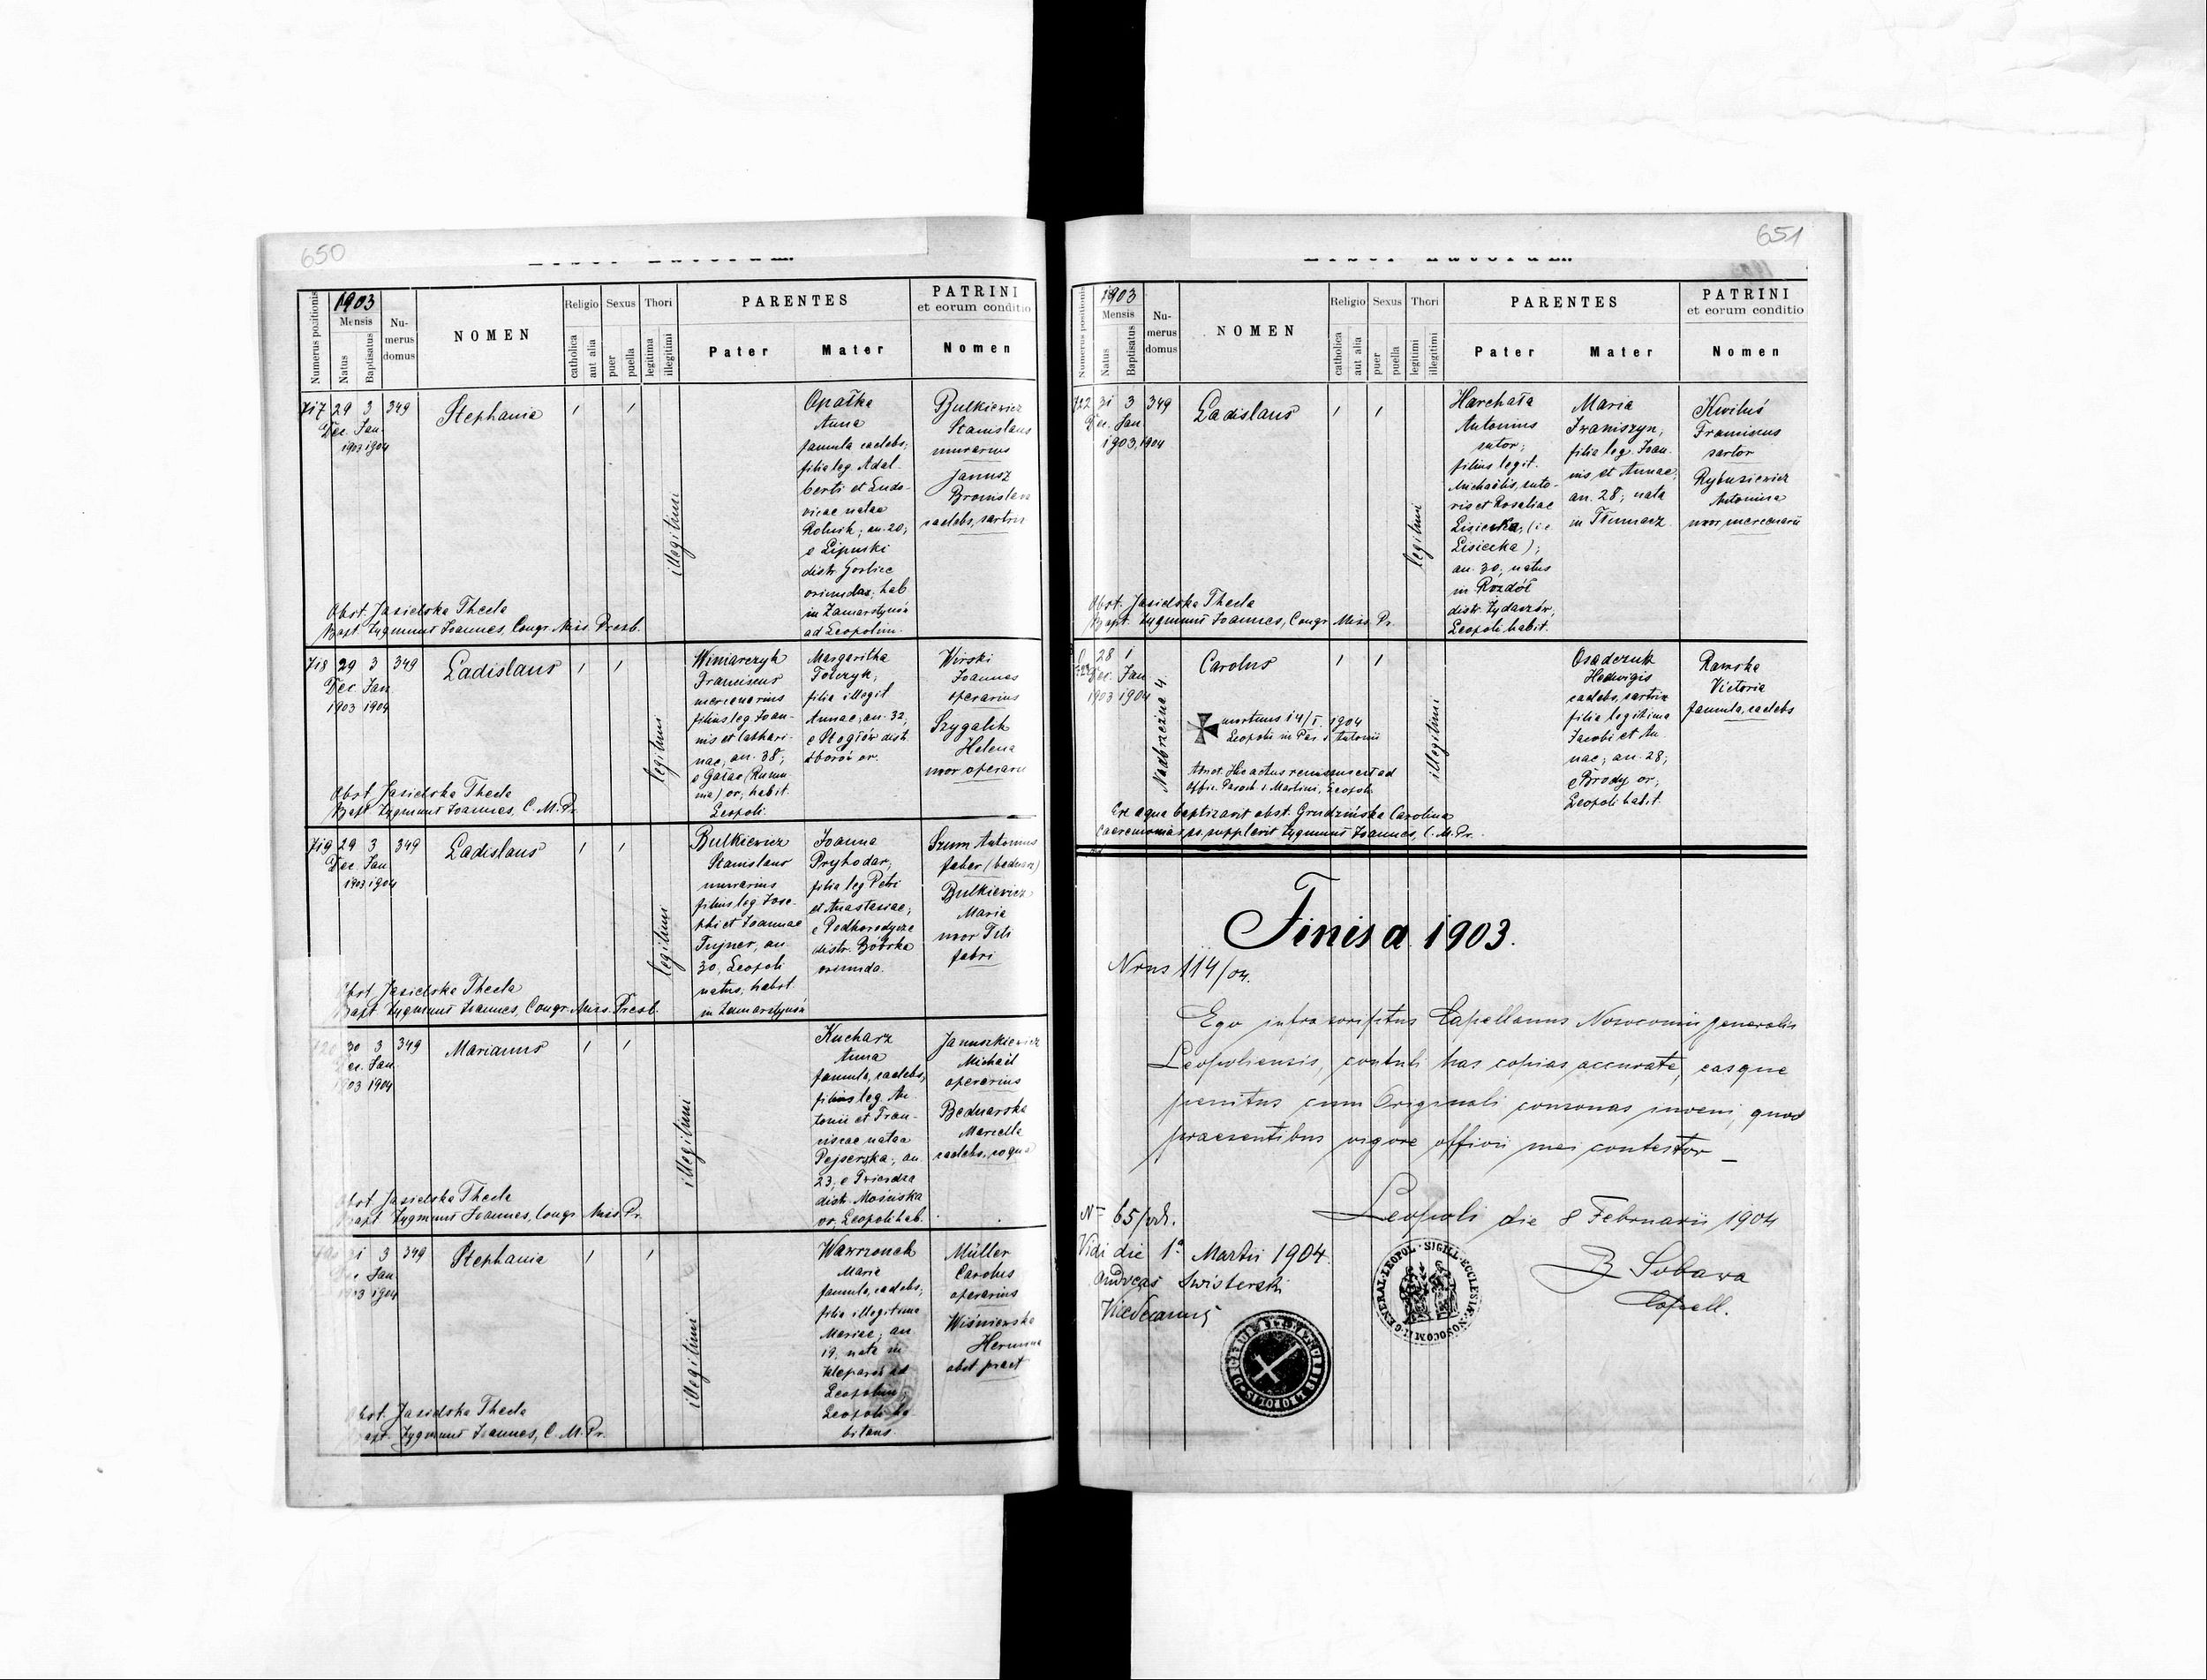 650
Liber Natorum.
Numerus positionis
1903
Mensis
Natus
Baptisatus
Nu-
merus
domus
NOMEN
Religio
catholica
aut alia
Sexus
puer
puella
Thori
legitima
illegitimi
PARENTES
Pater
Mater
PATRINI
et eorum conditio
Nomen
717 29 3 349 Stephania
Dec. Jan.
1903 1904
illegitimi
Opałka
Anna
famula caelebs,
filia leg. Adal-
berti et Ludo-
vicae natae
Rolnik; an. 20;
e Lipinski
distr. Gorlice
oriunda, hab.
in Zamarstynów
ad Leopolim.
Bulkiewicz
Stanislaus
murarius
Janusz
Bronislava
caelebs, sartrix
Obst. Jasielska Thecla
Bapt. Zygmunt Joannes, Congr. Miss. Presb.
718 29 3 349 Ladislaus
Dec. Jan.
1903 1904
legitimi
Winiarczyk
Franciscus
mercenarius
filius leg. Joan-
nis et Cathari-
nae, an. 38;
e Gałac (Rumu-
nia) or., habit.
Leopoli.
Margaritha
Tokczyk,
filia illegit
Annae, an. 32,
e distr.
Zborów or.
Wirski
Joannes
operarius
Szygalik
Helena
uxor operarii
Obst. Jasielska Thecla
Bapt. Zygmunt Joannes, C. M. Pr.
719 29 3 349 Ladislaus
Dec. Jan.
1903 1904
legitimi
Bulkiewicz
Stanislaus
murarius
filius leg. Jose-
phi et Joannae
Fujner, an.
30, Leopoli
natus, habit.
in Zamarstynów
Joanna
Pryhodar,
filia leg. Petri
et Anastasiae,
e Podhorodyszcze
distr. Bóbrka
oriunda.
Szum Antonius
faber (bednarz)
Bulkiewicz
Maria
uxor Petri
fabri
Obst. Jasielska Thecla
Bapt. Zygmunt Joannes, Congr. Miss. Presb.
720 30 3 349 Marianus
Dec. Jan.
1903 1904
illegitimi
Kucharz
Anna
famula, caelebs,
filius leg. An-
tonii et Fran-
ciscae natae
Pejserska, an.
23, e Twierdza
distr. Mościska
or. Leopoli hab.
Januszkiewicz
Michaël
operarius
Bednarska
Marcella
caelebs, coqua
Obst. Jasielska Thecla
Bapt. Zygmunt Joannes, Congr. Miss. Pr.
31 3 349 Stephania
Dec. Jan.
1903 1904
illegitimi
Wawrzonek
Maria
famula, caelebs,
filia illegitima
Mariae, an.
19, nata in
Kleparów ad
Leopolim,
Leopoli ha-
bitans.
Müller
Carolus
operarius
Wiśniewska
Hermina
obst. pract.
Obst. Jasielska Thecla
Bapt. Zygmunt Joannes, C. M. Pr.
651
Liber Natorum.
Numerus positionis
1903
Mensis
Natus
Baptisatus
Nu-
merus
domus
NOMEN
Religio
catholica
aut alia
Sexus
puer
puella
Thori
legitimi
illegitimi
PARENTES
Pater
Mater
PATRINI
et eorum conditio
Nomen
722 31 3 349 Ladislaus
Dec. Jan
1903 1904
legitimi
Harchała
Antonius
sutor,
filius legit.
Michaëlis, suto-
ris et Rosaliae
Lisiecka, (i.e.
Lisiecka);
an. 30, natus
in Rozdół
distr. Żydaczów,
Leopoli habit.
Maria
Iwaniszyn,
filia leg. Joan-
nis et Annae,
an. 28, nata
in Tłumacz
Kwiluś
Franciscus
sartor
Rybusiewicz
Antonina
uxor mercenarii
Obst. Jasielska Thecla
Bapt. Zygmunt Joannes, Congr. Miss. Pr.
28 1 Carolus
Dec. Jan
1903 1904
Nadbrzeżna 4.
mortuus 14/I. 1904
Leopoli in Par. S. Antonii
Annot. Hic actus remissus est ad
Offic. Paroch. S. Martini, Leopoli
illegitimi
Osadczuk
Hedwigis
caelebs, sartrix
filia legitima
Jacobi et An-
nae, an. 28,
e Brody or,
Leopoli habit.
Ramska
Victoria
famula, caelebs
Ex aqua baptizavit obst. Grudzińska Carolina
Caeremonias ss. supplevit Zygmunt Joannes, C. M. Pr.
Finis a 1903.
Nrus 114/04.
Ego infra scriptus Capellanus Nosocomii generalis
Leopoliensis, contuli has copias accurate, easque
penitus cum Originali consonas inveni, quod
praesentibus vigore officii mei contestor _
Leopoli die 8 Februarii 1904
Sobawa
Capell.
N= 65/04.
Vidi die 1a Martii 1904.
Andreas Swisterski
Vicedecanus
SIGILL. ECCLESIÆ NOSOCOMII GENERAL. LEOPOL.